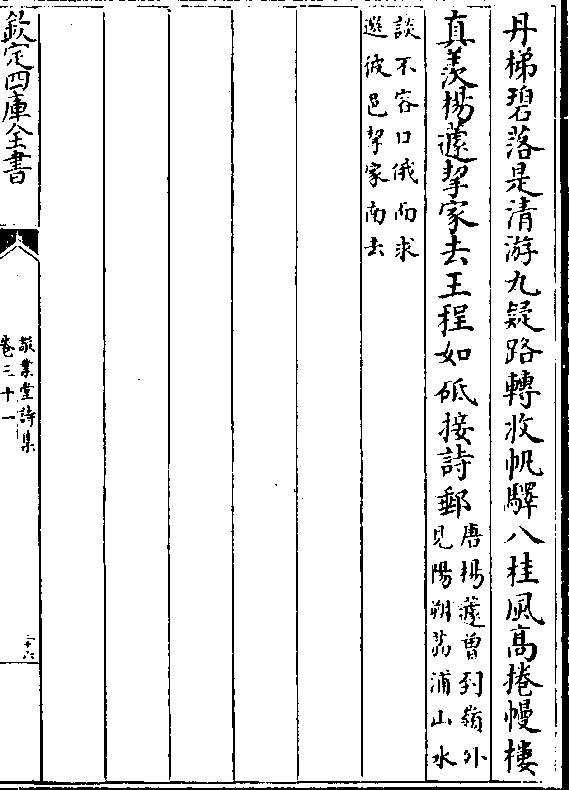 丹梯碧落是清游九疑路轉收帆驛八桂風高捲幔樓
真羨楊蘧挈家去王程如砥接詩郵
唐楊蘧曾到嶺外
見陽朔荔浦山水
談不容口俄而求
選彼邑挈家南去
欽定四庫全書
敬業堂詩集
卷三十一
二十六